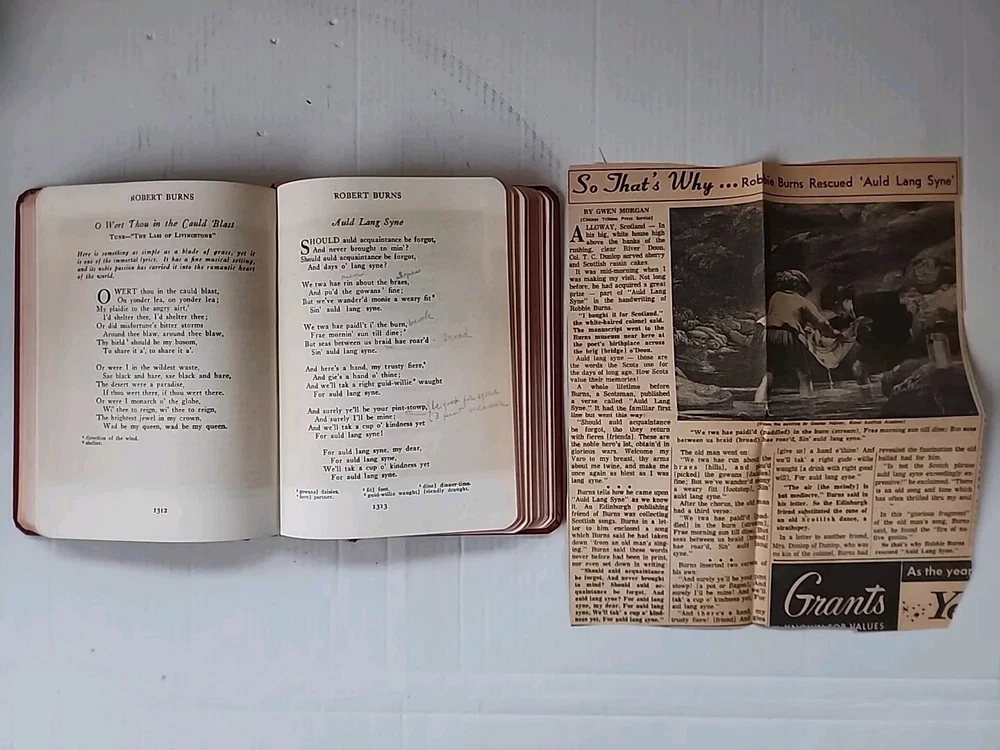 ROBERT BURNS
O Wert Thou in the Cauld Blast
TUNE—"THE LASS OF LIVINGSTONE"
Here is something as simple as a blade of grass, yet it
is one of the immortal lyrics. It has a fine musical setting,
and its noble passion has carried it into the romantic heart
of the world.
O WERT thou in the cauld blast,
On yonder lea, on yonder lea;
My plaidie to the angry airt,¹
I'd shelter thee, I'd shelter thee;
Or did misfortune's bitter storms
Around thee blaw, around thee blaw,
Thy bield² should be my bosom,
To share it a', to share it a'.
Or were I in the wildest waste,
Sae black and bare, sae black and bare,
The desert were a paradise,
If thou wert there, if thou wert there.
Or were I monarch o' the globe,
Wi' thee to reign, wi' thee to reign,
The brightest jewel in my crown,
Wad be my queen, wad be my queen.
¹ direction of the wind.
² shelter.
1312
ROBERT BURNS
Auld Lang Syne
SHOULD auld acquaintance be forgot,
And never brought to min'?
Should auld acquaintance be forgot,
And days o' lang syne?
We twa hae rin about the braes,
And pu'd the gowans¹ fine;
But we've wander'd monie a weary fit²
Sin' auld lang syne.
We twa hae paidl't i' the burn,
Frae mornin' sun till dine;³
But seas between us braid hae roar'd
broad
Sin' auld lang syne.
And here's a hand, my trusty fiere,⁴
And gie's a hand o' thine;
And we'll tak a right guid-willie⁵ waught
For auld lang syne.
And surely ye'll be your pint-stowp,
And surely I'll be mine;
And we'll tak a cup o' kindness yet
For auld lang syne!
For auld lang syne, my dear,
For auld lang syne,
We'll tak a cup o' kindness yet
For auld lang syne!
¹ [gowans] daisies. ² [fit] foot. ³ [dine] dinner-time.
⁴ [fiere] partner. ⁵ guid-willie waught] friendly draught.
1313
So That's Why ... Robbie Burns Rescued 'Auld Lang Syne'
BY GWEN MORGAN
[Chicago Tribune Press Service]
ALLOWAY, Scotland — In
his big, white house high
above the banks of the
rushing, clear River Doon,
Col. T. C. Dunlop served sherry
and Scottish raisin cakes.
It was mid-morning when I
was making my visit. Not long
before, he had acquired a great
prize — part of "Auld Lang
Syne" in the handwriting of
Robbie Burns.
"I bought it for Scotland,"
the white-haired colonel said.
The manuscript went to the
Burns museum near here at
the poet's birthplace across
the brig [bridge] o'Doon.
Auld lang syne — those are
the words the Scots use for
the days of long ago. How Scots
value their memories!
A whole lifetime before
Burns, a Scotsman, published
a verse called "Auld Lang
Syne." It had the familiar first
line but went this way:
"Should auld acquaintance
be forgot, tho they return
with fieres [friends]. These are
the noble hero's lot, obtain'd in
glorious wars. Welcome my
Varo to my breast, thy arms
about me twine, and make me
once again as blest as I was
lang syne."
Burns tells how he came upon
"Auld Lang Syne" as we know
it. An Edinburgh publishing
friend of Burns was collecting
Scottish songs. Burns in a let-
ter to him enclosed a song
which Burns said he had taken
down "from an old man's sing-
ing." Burns said these words
never before had been in print,
nor even set down in writing:
"Should auld acquaintance
be forgot, And never brought
to mind? Should auld ac-
quaintance be forgot, And
auld lang syne? For auld lang
syne, my dear, For auld lang
syne, We'll tak' a cup o' kind-
ness yet, For auld lang syne."
"We twa hae paidl'd (paddled) in the burn (stream), Frae morning sun till dine; But seas
between us braid (broad) hae roar'd, Sin' auld lang syne."
The old man went on:
"We twa hae run about the
braes [hills], and pu'd
[picked] the gowans [daisies]
fine; But we've wander'd mony
a weary fitt [footstep], Sin'
auld lang syne."
After the chorus, the old man
had a third verse:
"We twa hae paidl'd [pad-
dled] in the burn [stream],
Frae morning sun till dine; But
seas between us braid [broad]
hae roar'd, Sin' auld lang
syne."
Burns inserted two verses of
his own:
"And surely ye'll be your pint
stowp! [a pot or flagon], And
surely I'll be mine! And we'll
tak' a cup o' kindness yet, For
auld lang syne."
"And there's a hand my
trusty fiere! [friend] And gies
[give us] a hand o'thine! And
we'll tak' a right gude - willie
waught [a drink with right good
will], For auld lang syne."
"The air [the melody] is
but mediocre," Burns said in
his letter. So the Edinburgh
friend substituted the tune of
an old Scottish dance, a
strathspey.
In a letter to another friend,
Mrs. Dunlop of Dunlop, who was
no kin of the colonel, Burns had
revealed the fascination the old
ballad had for him.
"Is not the Scotch phrase
auld lang syne exceedingly ex-
pressive?" he exclaimed. "There
is an old song and tune which
has often thrilled thru my soul."
In this "glorious fragment"
of the old man's song, Burns
said, he found the "fire of na-
tive genius."
So that's why Robbie Burns
rescued "Auld Lang Syne."
Grants
KNOWN FOR VALUES
As the year